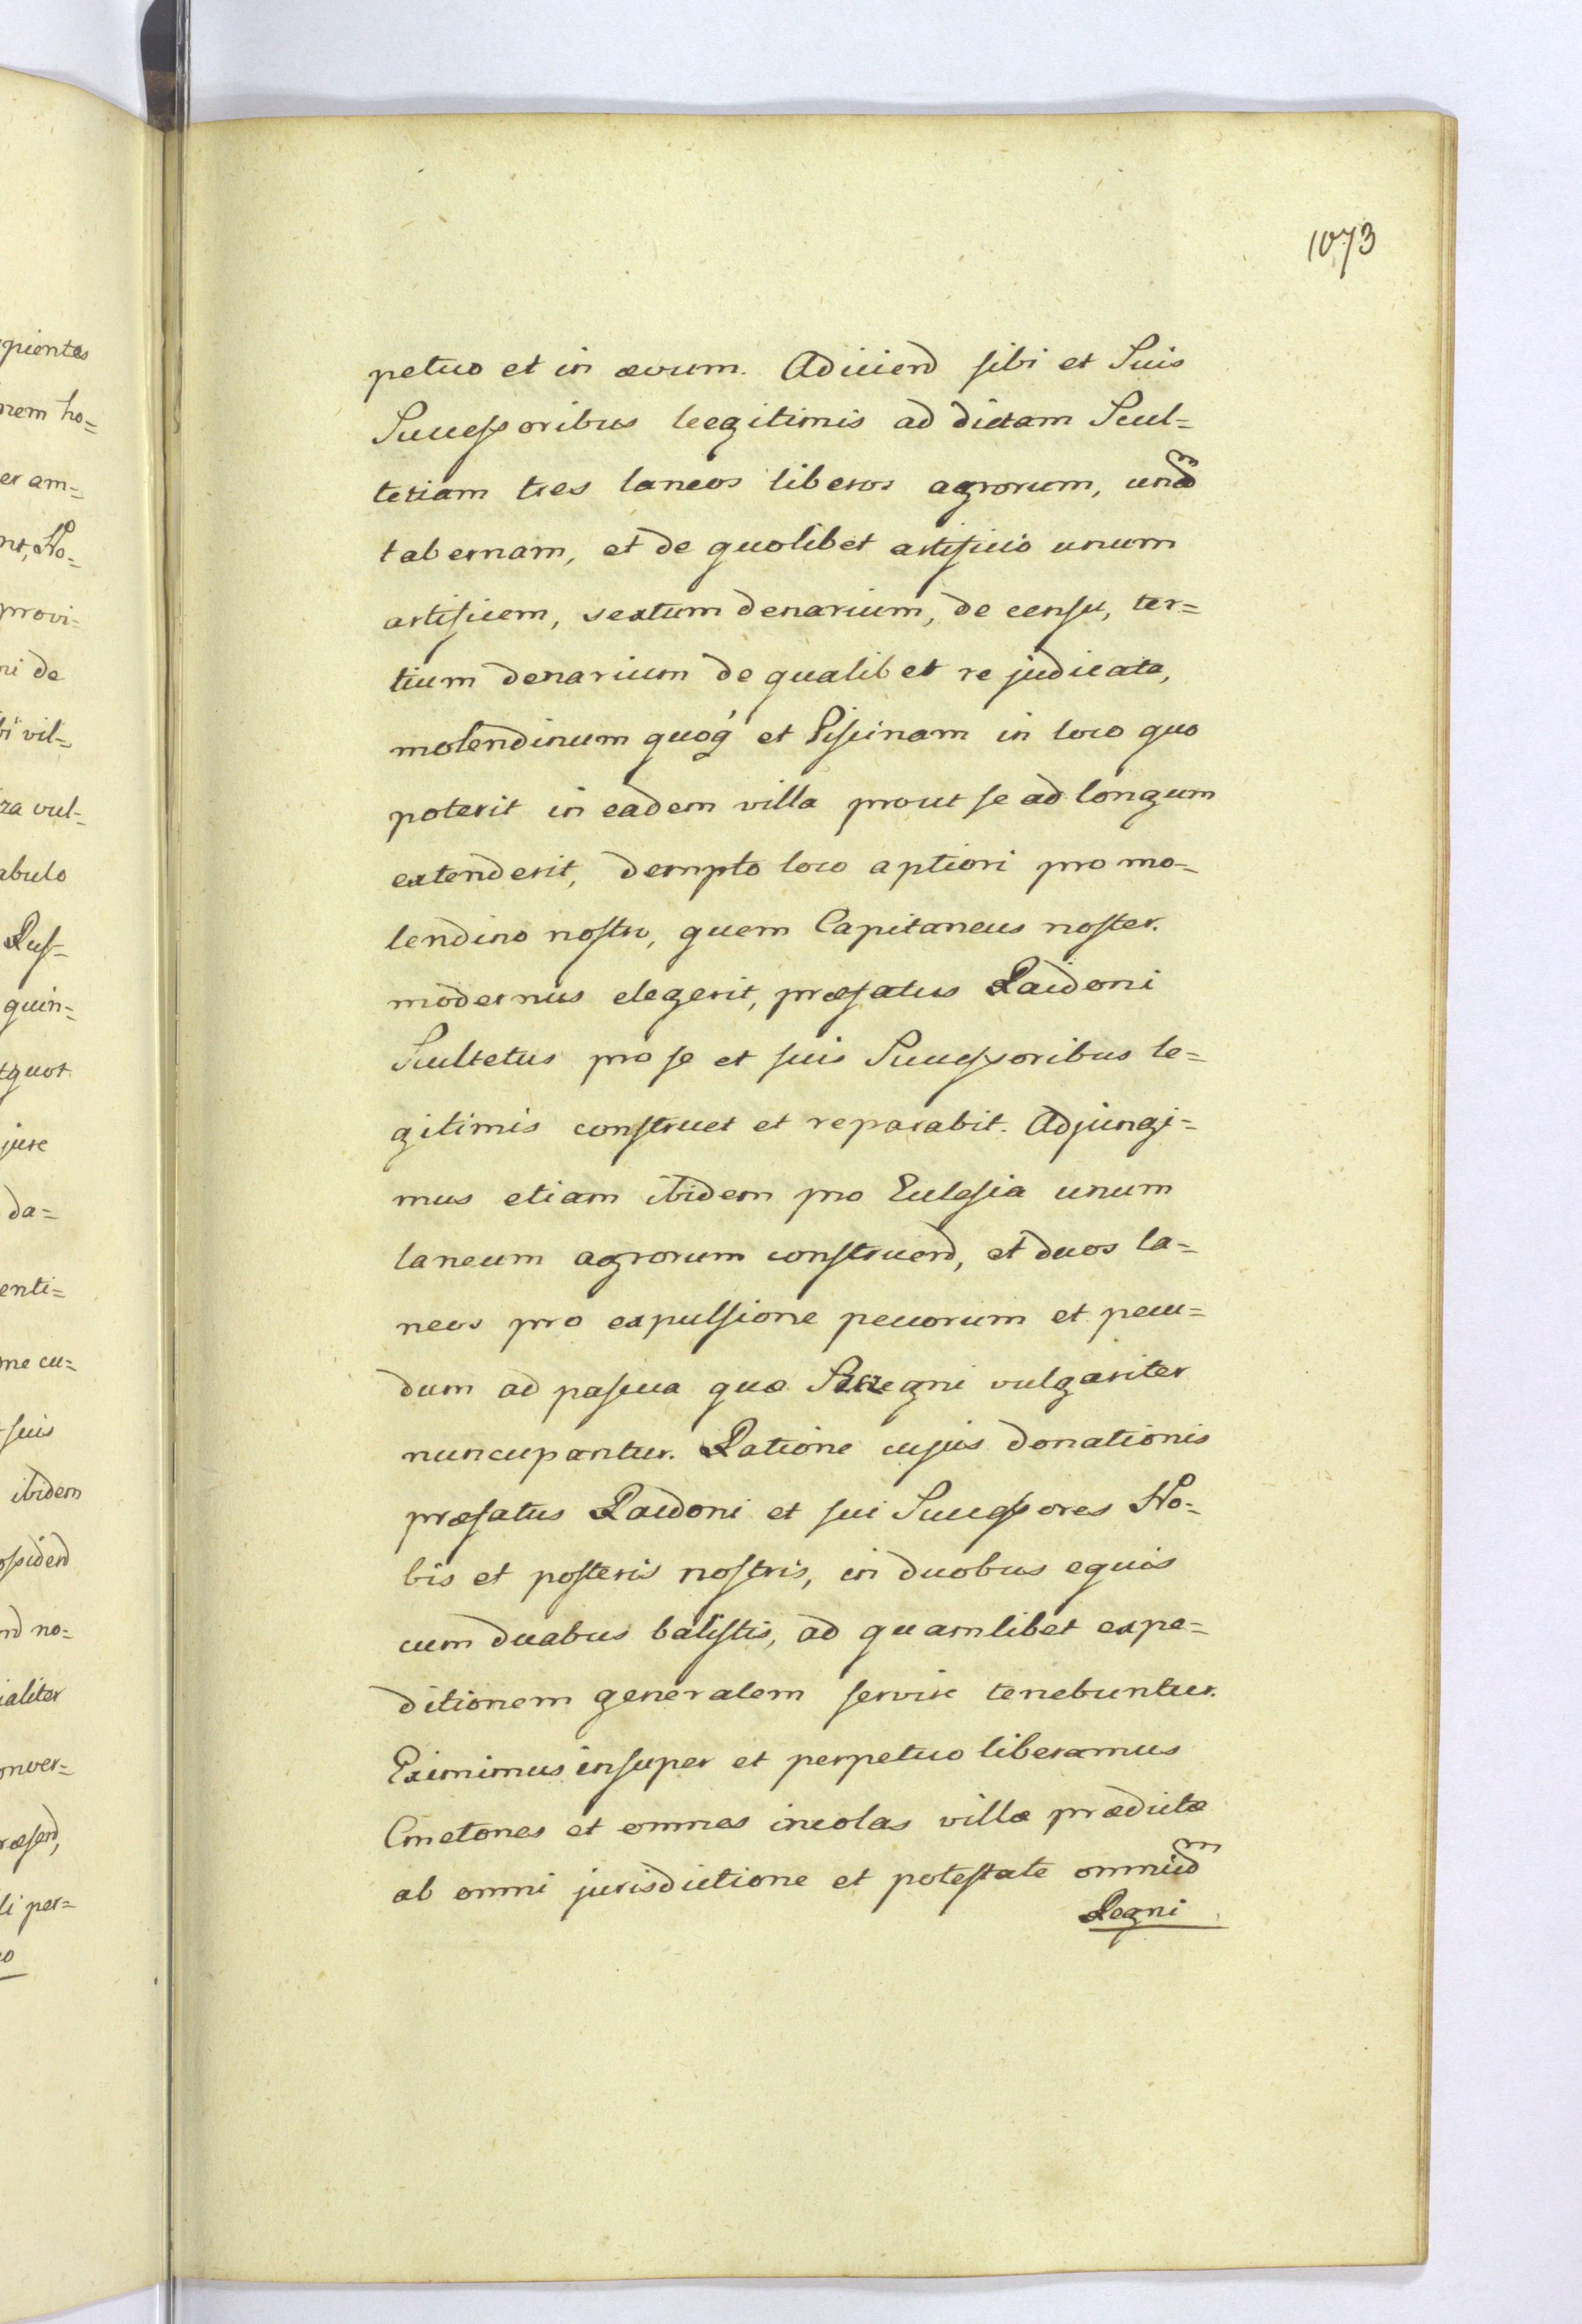 1073
petuo et in ævum. Adiiciend sibi et Suis
Successoribus legitimis ad dictam Scul=
tetiam tres laneos liberos agrorum, unam
tabernam, et de quolibet artificio unum
artificem, sextum denarium, de censu, ter=
tium denarium de qualibet re judicata,
molendinum quoq' et Piscinam in loco quo
poterit in eadem villa prout se ad longum
extenderit, dempto loco aptiori pro mo=
lendino nostro, quem Capitaneus noster.
modernus elegerit, præfatus Raidoni
Scultetus pro se et suis Successoribus le=
gitimis construet et reparabit. Adjungi=
mus etiam ibidem pro Ecclesia unum
laneum agrorum construend, et duos la=
neos pro expulsione pecorum et pecu=
dum ad pascua quæ vulgariter
nuncupantur. Ratione cujus donationis
præfatus Raidoni et sui Successores No=
bis et posteris nostris, in duobus equis
cum duabus balistis, ad quamlibet expe=
ditionem generalem servire tenebuntur.
Eximimus insuper et perpetuo liberamus
Cmetones et omnes incolas villæ prædictæ
ab omni jurisdictione et potestate omnium
Regni
pientes
nem ho=
er am=
nt, No=
provi=
ni de
bi vil=
za vul=
abulo
Rus=
quin=
tquot
jure
da=
enti=
me cu=
suis
ibidem
ossidend
nd no=
ialiter
onver=
ræsend,
li per=